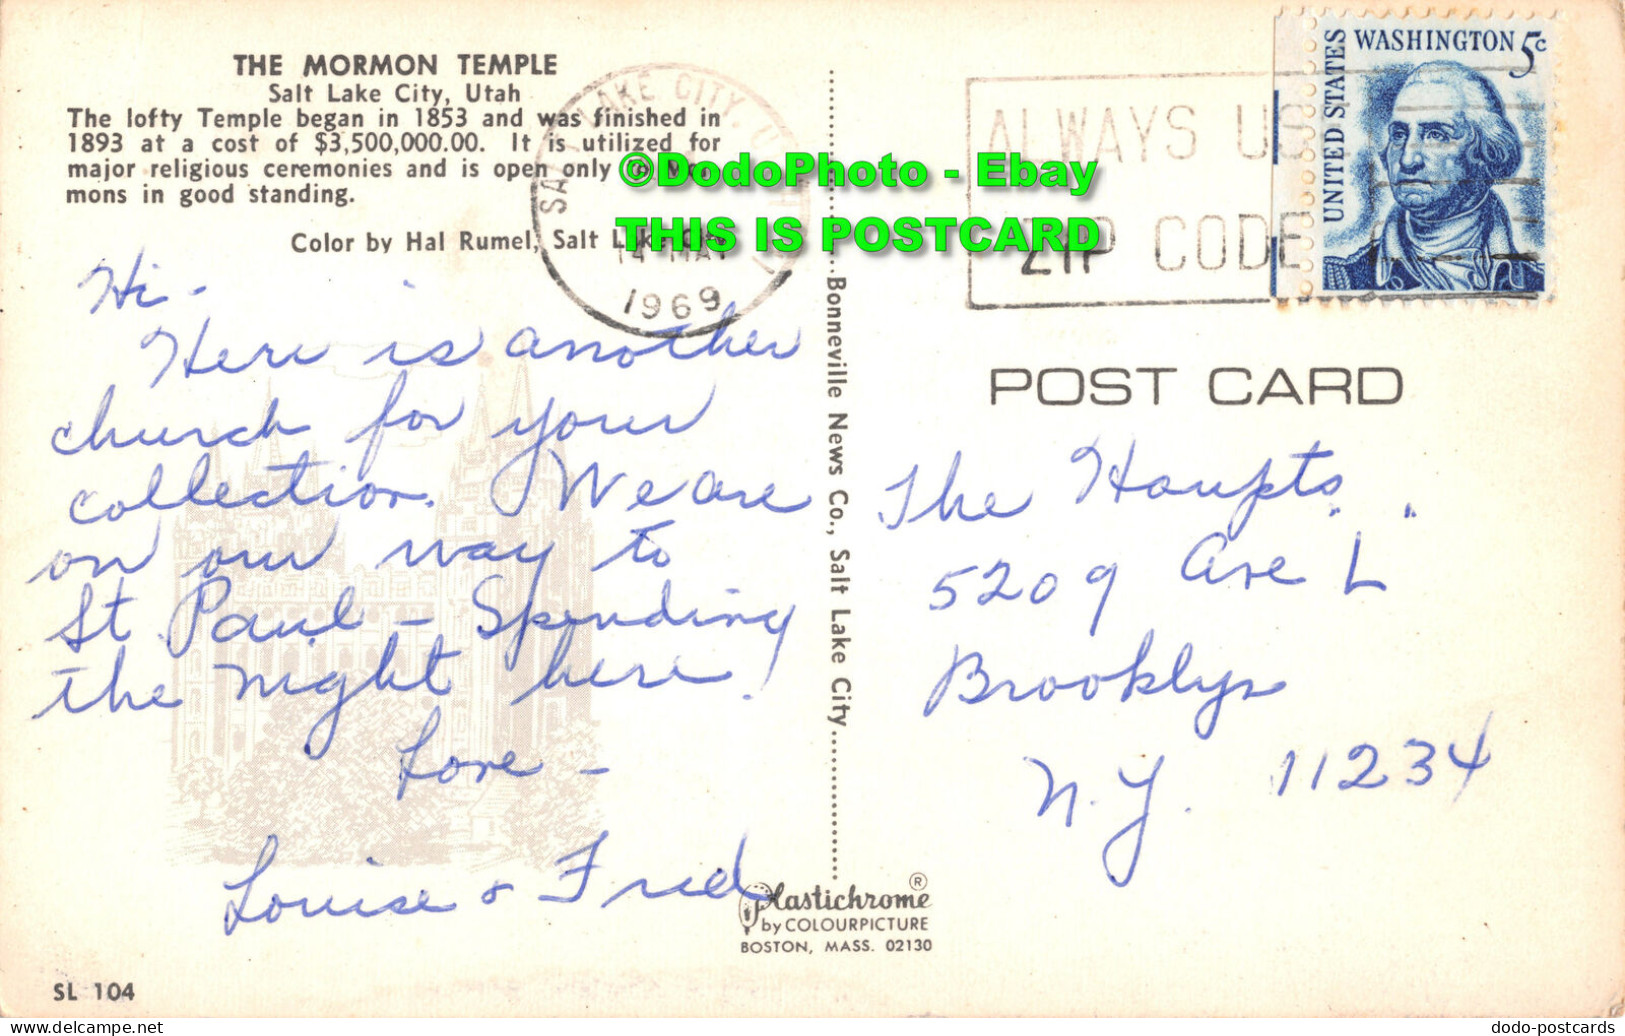 THE MORMON TEMPLE
Salt Lake City, Utah
The lofty Temple began in 1853 and was finished in
1893 at a cost of $3,500,000.00. It is utilized for
major religious ceremonies and is open only to Mor-
mons in good standing.
Color by Hal Rumel, Salt Lake City
SALT LAKE CITY, UTAH
14 MAY
1969
ALWAYS USE
ZIP CODE
UNITED STATES
WASHINGTON 5c
©DodoPhoto - Ebay
THIS IS POSTCARD
Hi -
Here is another
church for your
collection. We are
on our way to
St Paul - Spending
the night here!
Love -
Louise & Fred
Bonneville News Co., Salt Lake City
POST CARD
The Haupts
5209 Ave L
Brooklyn
N.Y. 11234
Plastichrome®
by COLOURPICTURE
BOSTON, MASS. 02130
SL 104
delcampe.net
dodo-postcards